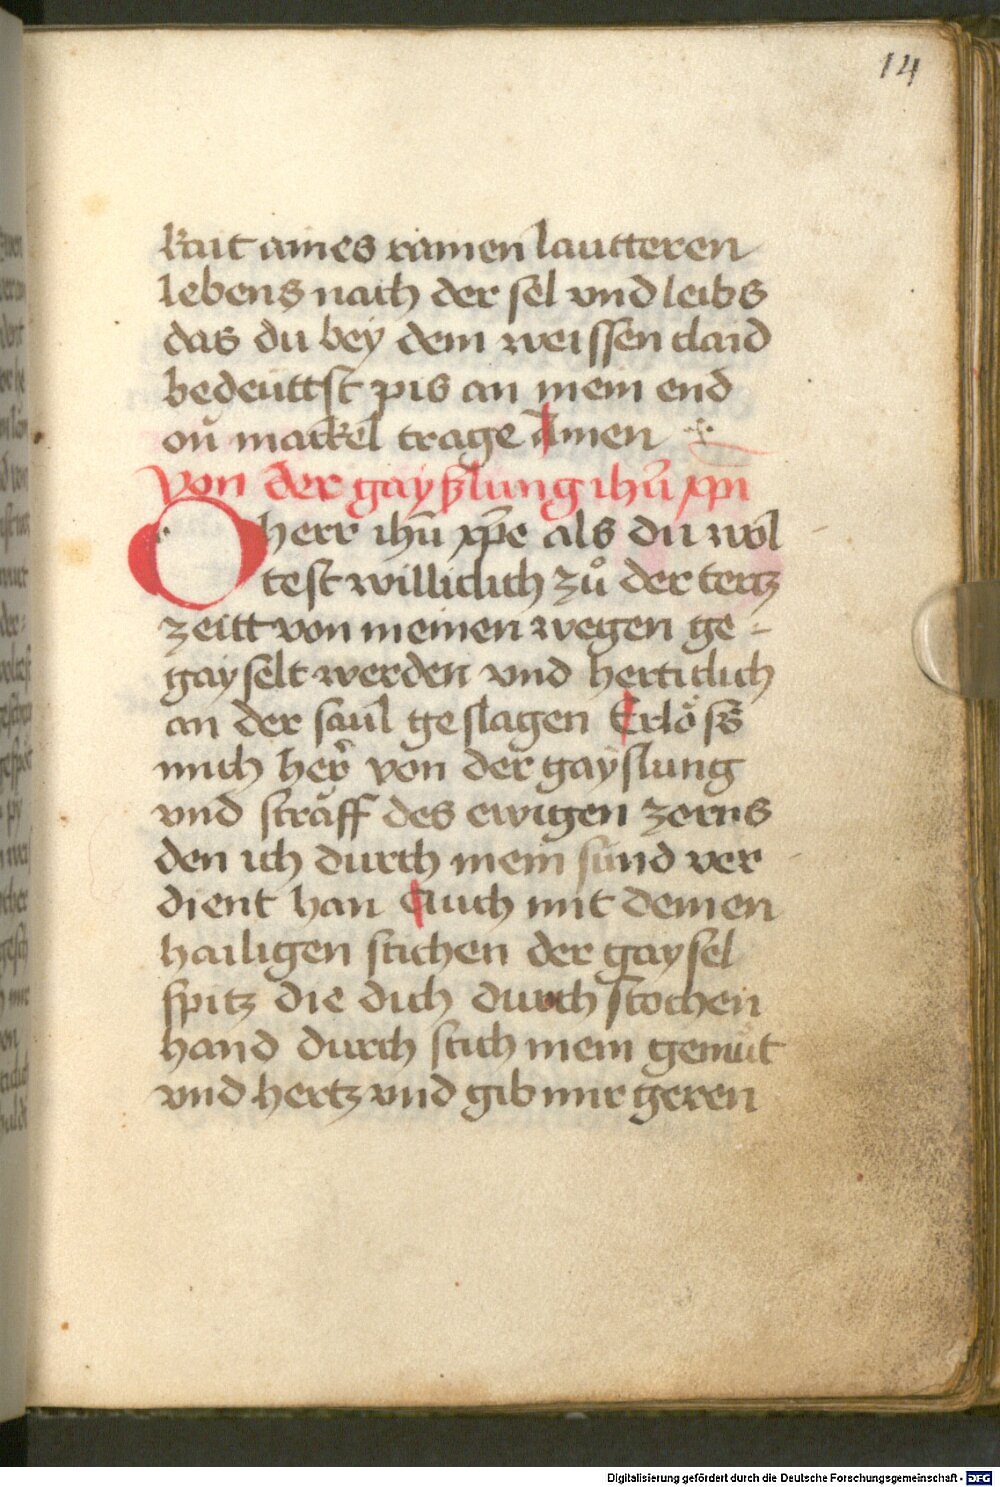 14
kait aines rainen lautteren
lebens nach der sel vnd leibs
das du bey dem weissen claid
bedeuttst pis an mein end
on̄ mackel trage Amen
Von der gayslung ihū xpi
O herr ihū xp̄e als du wol
test williclich zů der tertz
zeitt von meinen wegen ge-
gayselt werden vnd herticlich
an der saul geslagen Erlöss
mich her̄ von der gayslung
vnd straff des ewigen zorns
den ich durch mein sünd ver
dient han Auch mit deinen
hailigen stichen der gaysel
spitz die dich durch stochen
hand durch stich mein gemüt
vnd hertz vnd gib mir geren
Digitalisierung gefördert durch die Deutsche Forschungsgemeinschaft - DFG